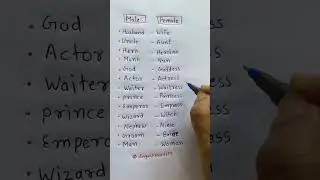 Male - Female
Husband - Wife
Uncle - Aunt
Hero - Heroine
Monk - Nun
God - Goddess
Actor - Actress
Waiter - Waitress
Prince - Princess
Emperor - Empress
Wizard - Witch
Nephew - Niece
Groom - Bride
Man - Woman
God
Actor
Waiter
Prince
Empero
Wizard